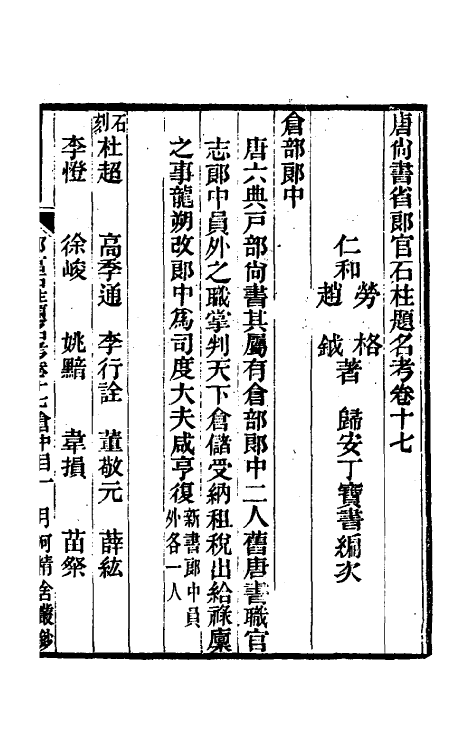 唐尙書省郎官石柱題名考卷十七
仁和 勞格 趙鉞 著 歸安丁寶書編次
倉部郎中
唐六典戸部尙書其屬有倉部郎中二人舊唐書職官
志郎中員外之職掌判天下倉儲受納租稅出給祿廩
之事龍朔改郎中爲司度大夫咸亨復新書郎中員外各一人
石刻杜超 高季通 李行詮 董敬元 薛紘
李憕 徐峻 姚黯 韋損 苗粲
卷十七倉中目一 月河精舍叢鈔